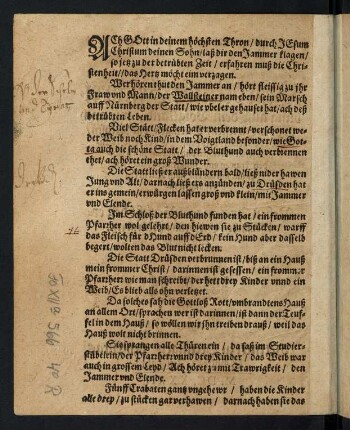 ACh GOtt in deinem höchsten Thron / durch JEsum
Christum deinen Sohn / laß dir den Jammer klagen /
so jetz zu der betrübten Zeit / erfahren muß die Chri-
stenheit / das Hertz möcht eim verzagen.
Wer hören thut den Jammer an / hört fleissig zu jhr
Fraw vnd Mann / der Wallsteiner nam eben / sein Marsch
auff Nürnberg der Statt / wie vbel er gehauset hat / ach deß
betrübten Leben.
Viel Stätt / Flecken hat er verbrennt / verschonet we-
der Weib noch Kind / in dem Voigtland besonder / wie Got-
ta auch die schöne Statt / der Bluthund auch verbrennen
thet / ach höret ein groß Wunder.
Die Statt ließ er außblündern bald / ließ nider hawen
Jung vnd Alt / darnach ließ ers anzünden / zu Drüsden hat
er ins gemein / erwürgen lassen groß vnd klein / mit Jammer
vnd Elende.
Im Schloß der Bluthund funden hat / ein frommen
Pfarrher wol gelehrt / den hiewen sie zu Stücken / warff
das Fleisch für d Hund auff d Erd / kein Hund aber dasselb
begert / wolten das Blut nicht lecken.
Die Statt Drüsden verbrunnen ist / biß an ein Hauß
mein frommer Christ / darinnen ist gesessen / ein frommer
Pfarrherr wie man schreibt / der hett drey Kinder vnnd ein
Weib / Es blieb alls ohn verletzet.
Da solches sah die Gottloß Rott / vmbrandtens Hauß
an allen Ort / sprachen wer ist darinnen / ist dann der Teuf-
fel in dem Hauß / so wöllen wir jhn treiben drauß / weil das
Hauß wolt nicht brinnen.
Sie sprangen alle Thüren ein / da saß im Studier-
stüblein / der Pfarrherr vnnd drey Kinder / das Weib war
auch in grossem Leyd / Ach höret zu mit Trawrigkeit / den
Jammer vnd Elende.
Fünff Crabaten gantz vngehewr / haben die Kinder
alle drey / zu stücken gar verhawen / darnach haben sie das